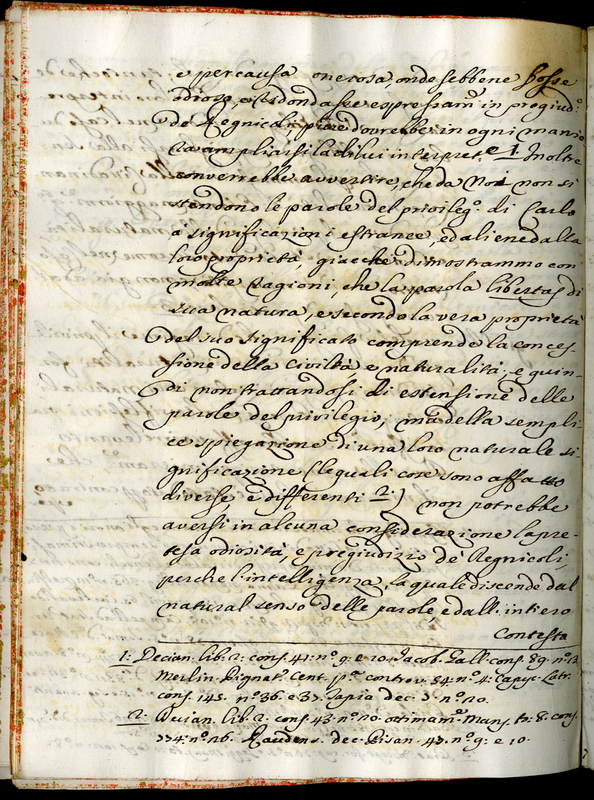 e per causa onerosa, onde sebbene fosse
odioso, e ridondasse espressam.e in progiud.o
de' Regnicoli pure dovrebbe in ogni manie
ra ampliarsi la di lui interpret.e 1. Inoltre
converrebbe avvertire, che da Noi non si
stendono le parole del privileg.o di Carlo
a significazioni estranee, ed aliene dalla
loro proprietà, giacche dimostrammo con
molte ragioni, che la parola libertas di
sua natura, e secondo la vera proprietà
del suo significato comprende la conces-
sione della Civiltà e naturalità; e quin-
di non trattandosi di estensione delle
parole del privilegio, ma della sempli
ce spiegazione di una loro naturale si-
gnificazione (le quali cose sono affatto
diverse e differenti 2.) non potrebbe
aversi in alcuna considerazione la pre-
tesa odiosità, e pregiudizio de' Regnicoli,
perche l'intelligenza, la quale discende dal
natural senso delle parole, e dall'intiero
Contesta
1: Decian. lib. 2: cons. 41: n.o 9. e 10. Jacob. Gall. cons. 89. n.o 12
Merlin. Pignat. cent. p.a controv. 54: n.o 4: Capyc. Latr.
cons. 145. n.o 36. e 37. Tapia dec. 3. n.o 20.
2. Decian. lib. 2. cons. 43. n.o 20. ottimam.e Mans. to. 8. cons.
n.o 26. Raudens. dec. Pisan. 43. n.o 9: e 10.